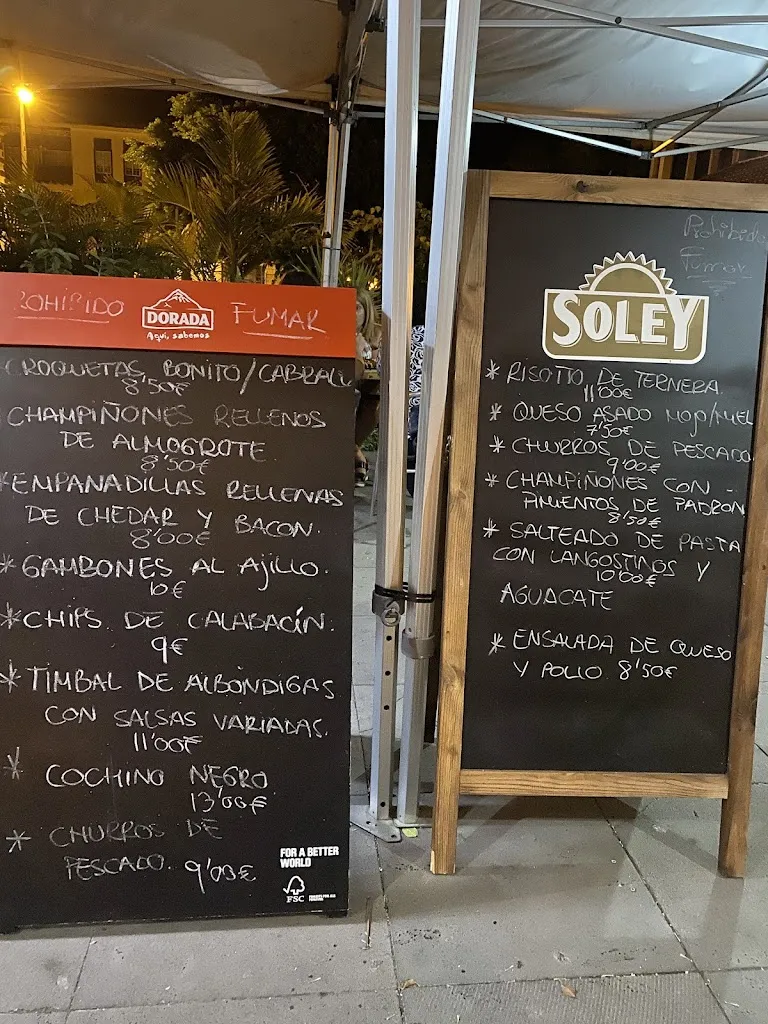 ROHIBIDO
DORADA
Aquí, sabemos
FUMAR
CROQUETAS BONITO/CABRALE
8'50€
CHAMPIÑONES RELLENOS
DE ALMOGROTE
8'50€
*EMPANADILLAS RELLENAS
DE CHEDAR Y BACON.
8'00€
*GAMBONES AL AJILLO.
10€
*CHIPS DE CALABACÍN.
9€
*TIMBAL DE ALBÓNDIGAS
CON SALSAS VARIADAS.
11'00€
* COCHINO NEGRO
13'00€
* CHURROS DE
PESCADO. 9'00€
FOR A BETTER
WORLD
FSC
Prohibido
Fumar
SOLEY
* RISOTTO DE TERNERA.
11'00€
* QUESO ASADO MOJO/MIEL
7'50€
* CHURROS DE PESCADO
9'00€
* CHAMPIÑONES CON -
PIMIENTOS DE PADRON
8'50€
* SALTEADO DE PASTA
CON LANGOSTINOS Y
10'00€
AGUACATE
* ENSALADA DE QUESO
Y POLLO 8'50€